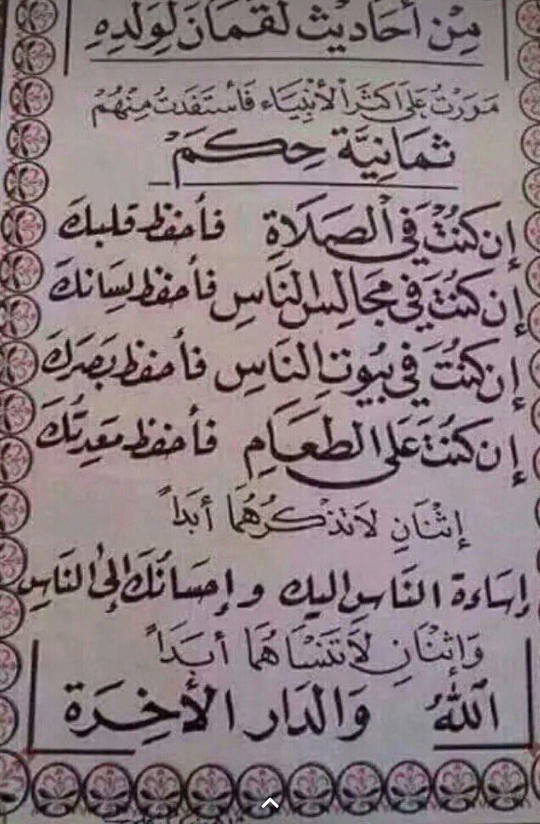 مِنْ أَحَادِيثِ لُقْمَانَ لِوَلَدِهِ
مَرَرْتُ عَلَى اكثَرَ الأَنْبِيَاءِ فَأسْتَفَدْتُ مِنْهُمْ
ثَمَانِيَّة حِكَمْ
إن كُنْتَ في الصَلَاةِ فأحفظ قلبكَ
إن كُنْتَ في مَجَالِس النَاسِ فأحفظ لِسَانكَ
إن كُنْتَ في بيُوتِ النَاسِ فأحفظ بَصَركَ
إن كُنْتَ عَلى الطَعَامِ فأحفظ مَعِدَتُكَ
إثْنَانِ لاَ تَذْكُرْهُمَا أبَداً
إسَاءة النَاسِ اليك و إحسَانُكَ إلىُ النَاسِ
وَإثْنَانِ لاَ تَنْسَاهُمَا أبَدَاً
اللَّهُ وَالدَار الأَخِرَة